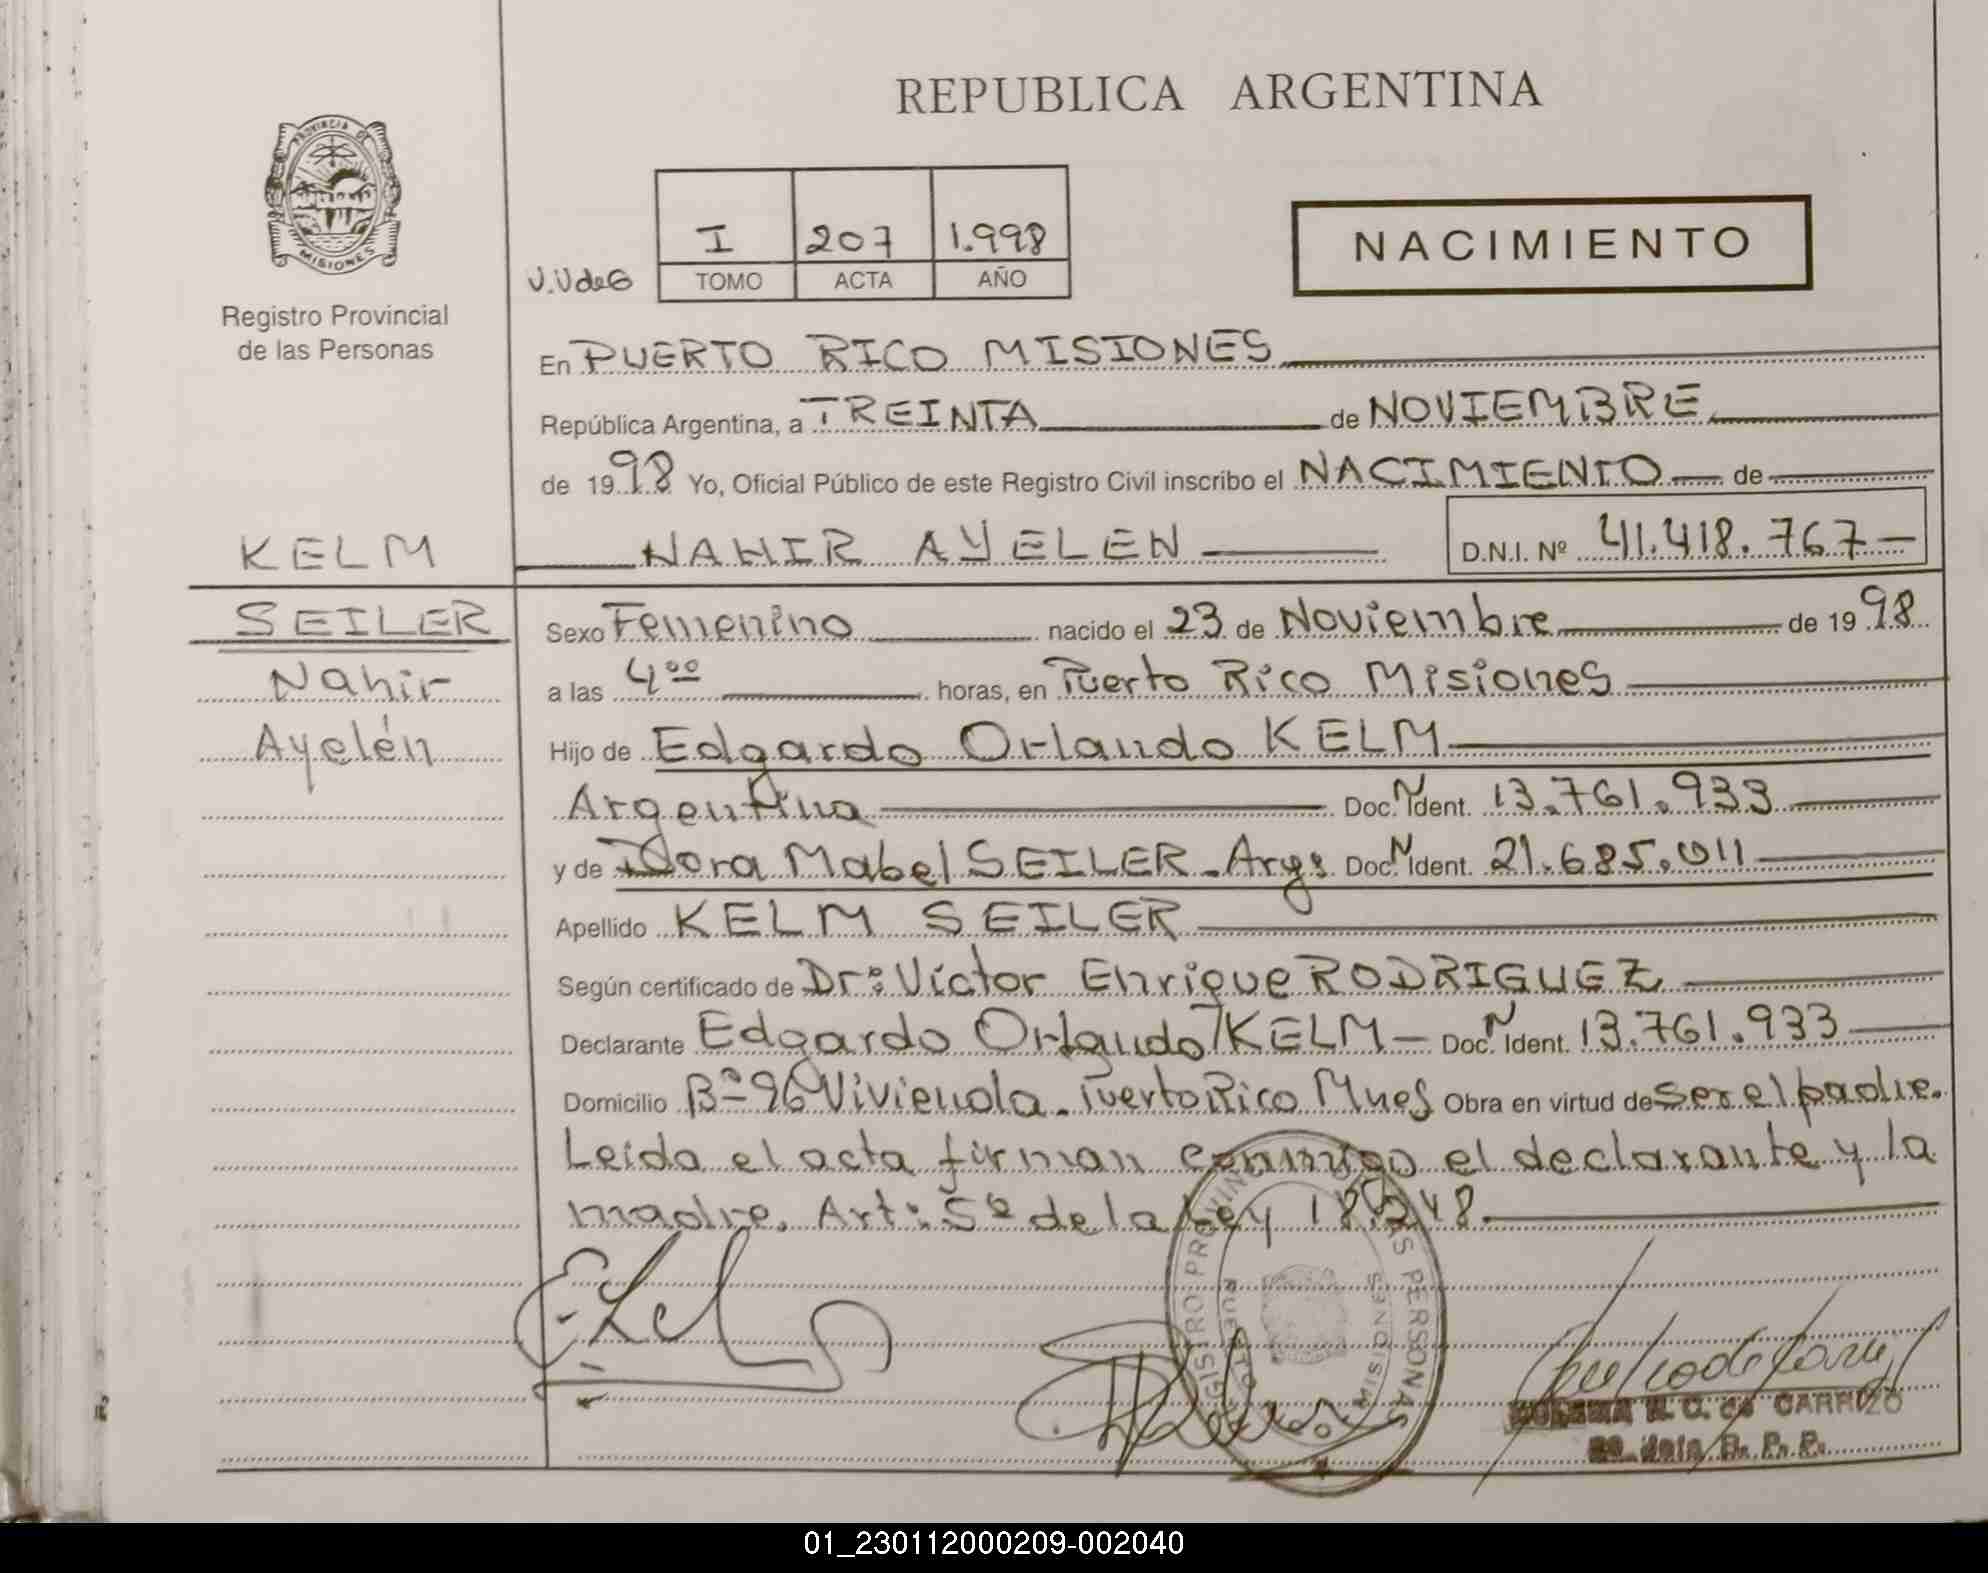 REPUBLICA ARGENTINA
PROVINCIA DE
MISIONES
Registro Provincial
de las Personas
I 207 1.998
V.VdeG TOMO ACTA AÑO
NACIMIENTO
En PUERTO RICO MISIONES
República Argentina, a TREINTA de NOVIEMBRE
de 1998 Yo, Oficial Público de este Registro Civil inscribo el NACIMIENTO de
KELM NAHIR AYELEN D.N.I. Nº 41.418.767
SEILER Sexo Femenino nacido el 23 de Noviembre de 1998
Nahir a las 4ºº horas, en Puerto Rico Misiones
Ayelén Hijo de Edgardo Orlando KELM
Argentina Doc. N Ident. 13.761.933
y de Dora Mabel SEILER - Doc. N Ident. 21.685.011
Apellido KELM SEILER
Según certificado de Dr: Víctor Enrique RODRIGUEZ
Declarante Edgardo Orlando KELM - Doc. N Ident. 13.761.933
Domicilio Bº 96 Vivienda - Puerto Rico Mnes Obra en virtud de ser el padre.
Leida el acta firman conmigo el declarante y la
madre. Art: 5º de la Ley 18.248.
REGISTRO PROVINCIAL DE LAS PERSONAS
PUERTO MISIONES
N. C. de CARRIZO
R. P. P.
01_230112000209-002040